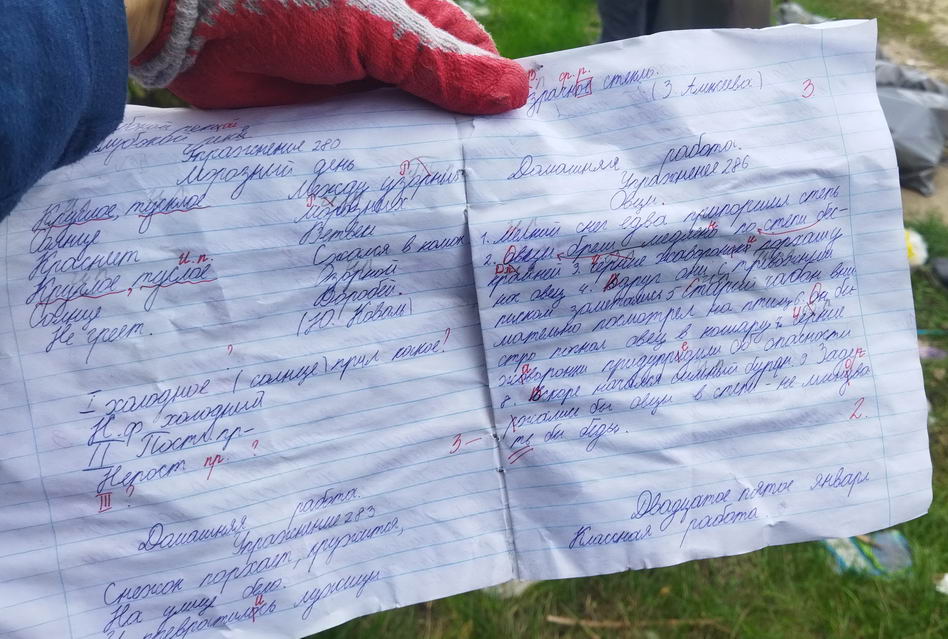 Упражнение 280
Морозный день
Круглое, тусклое
Солнце
Краснеет
и.п.
Круглое, тусклое
Солнце
Не греет.
Между узорных
Морозных
Ветвей
Сжался в комок
Зоркой
Воробей.
(Ю. Коваль)
?
I холодное (солнце) прил какое?
Н.ф холодный
II Пост. пр-
Непост пр. ?
III ?
3-
Домашняя работа.
Упражнение 283
Снежок порхает, кружится,
На улице бело.
И превратились лужицы
зрачное стекло.
(З. Александрова)
3
Домашняя работа.
Упражнение 286
Овцы.
1. Мелкий снег едва припорошил степь
2. Овцы брели медлено по степи бес-
крайней 3. Черние жаворонки
нок овец 4. Вдруг они с тревожным
писком заметались 5 Старый чабан вни
мательно посмотрел на птиц 6. Он бы
стро погнал овец в кошару 7. Черние
жаворонки придупридили об опасности
8. Вскоре начался снежный буран. 9 Задер
жались бы овцы в степи - не миновать
бы беды.
2.
Двадцатое пятое января
Классная работа.